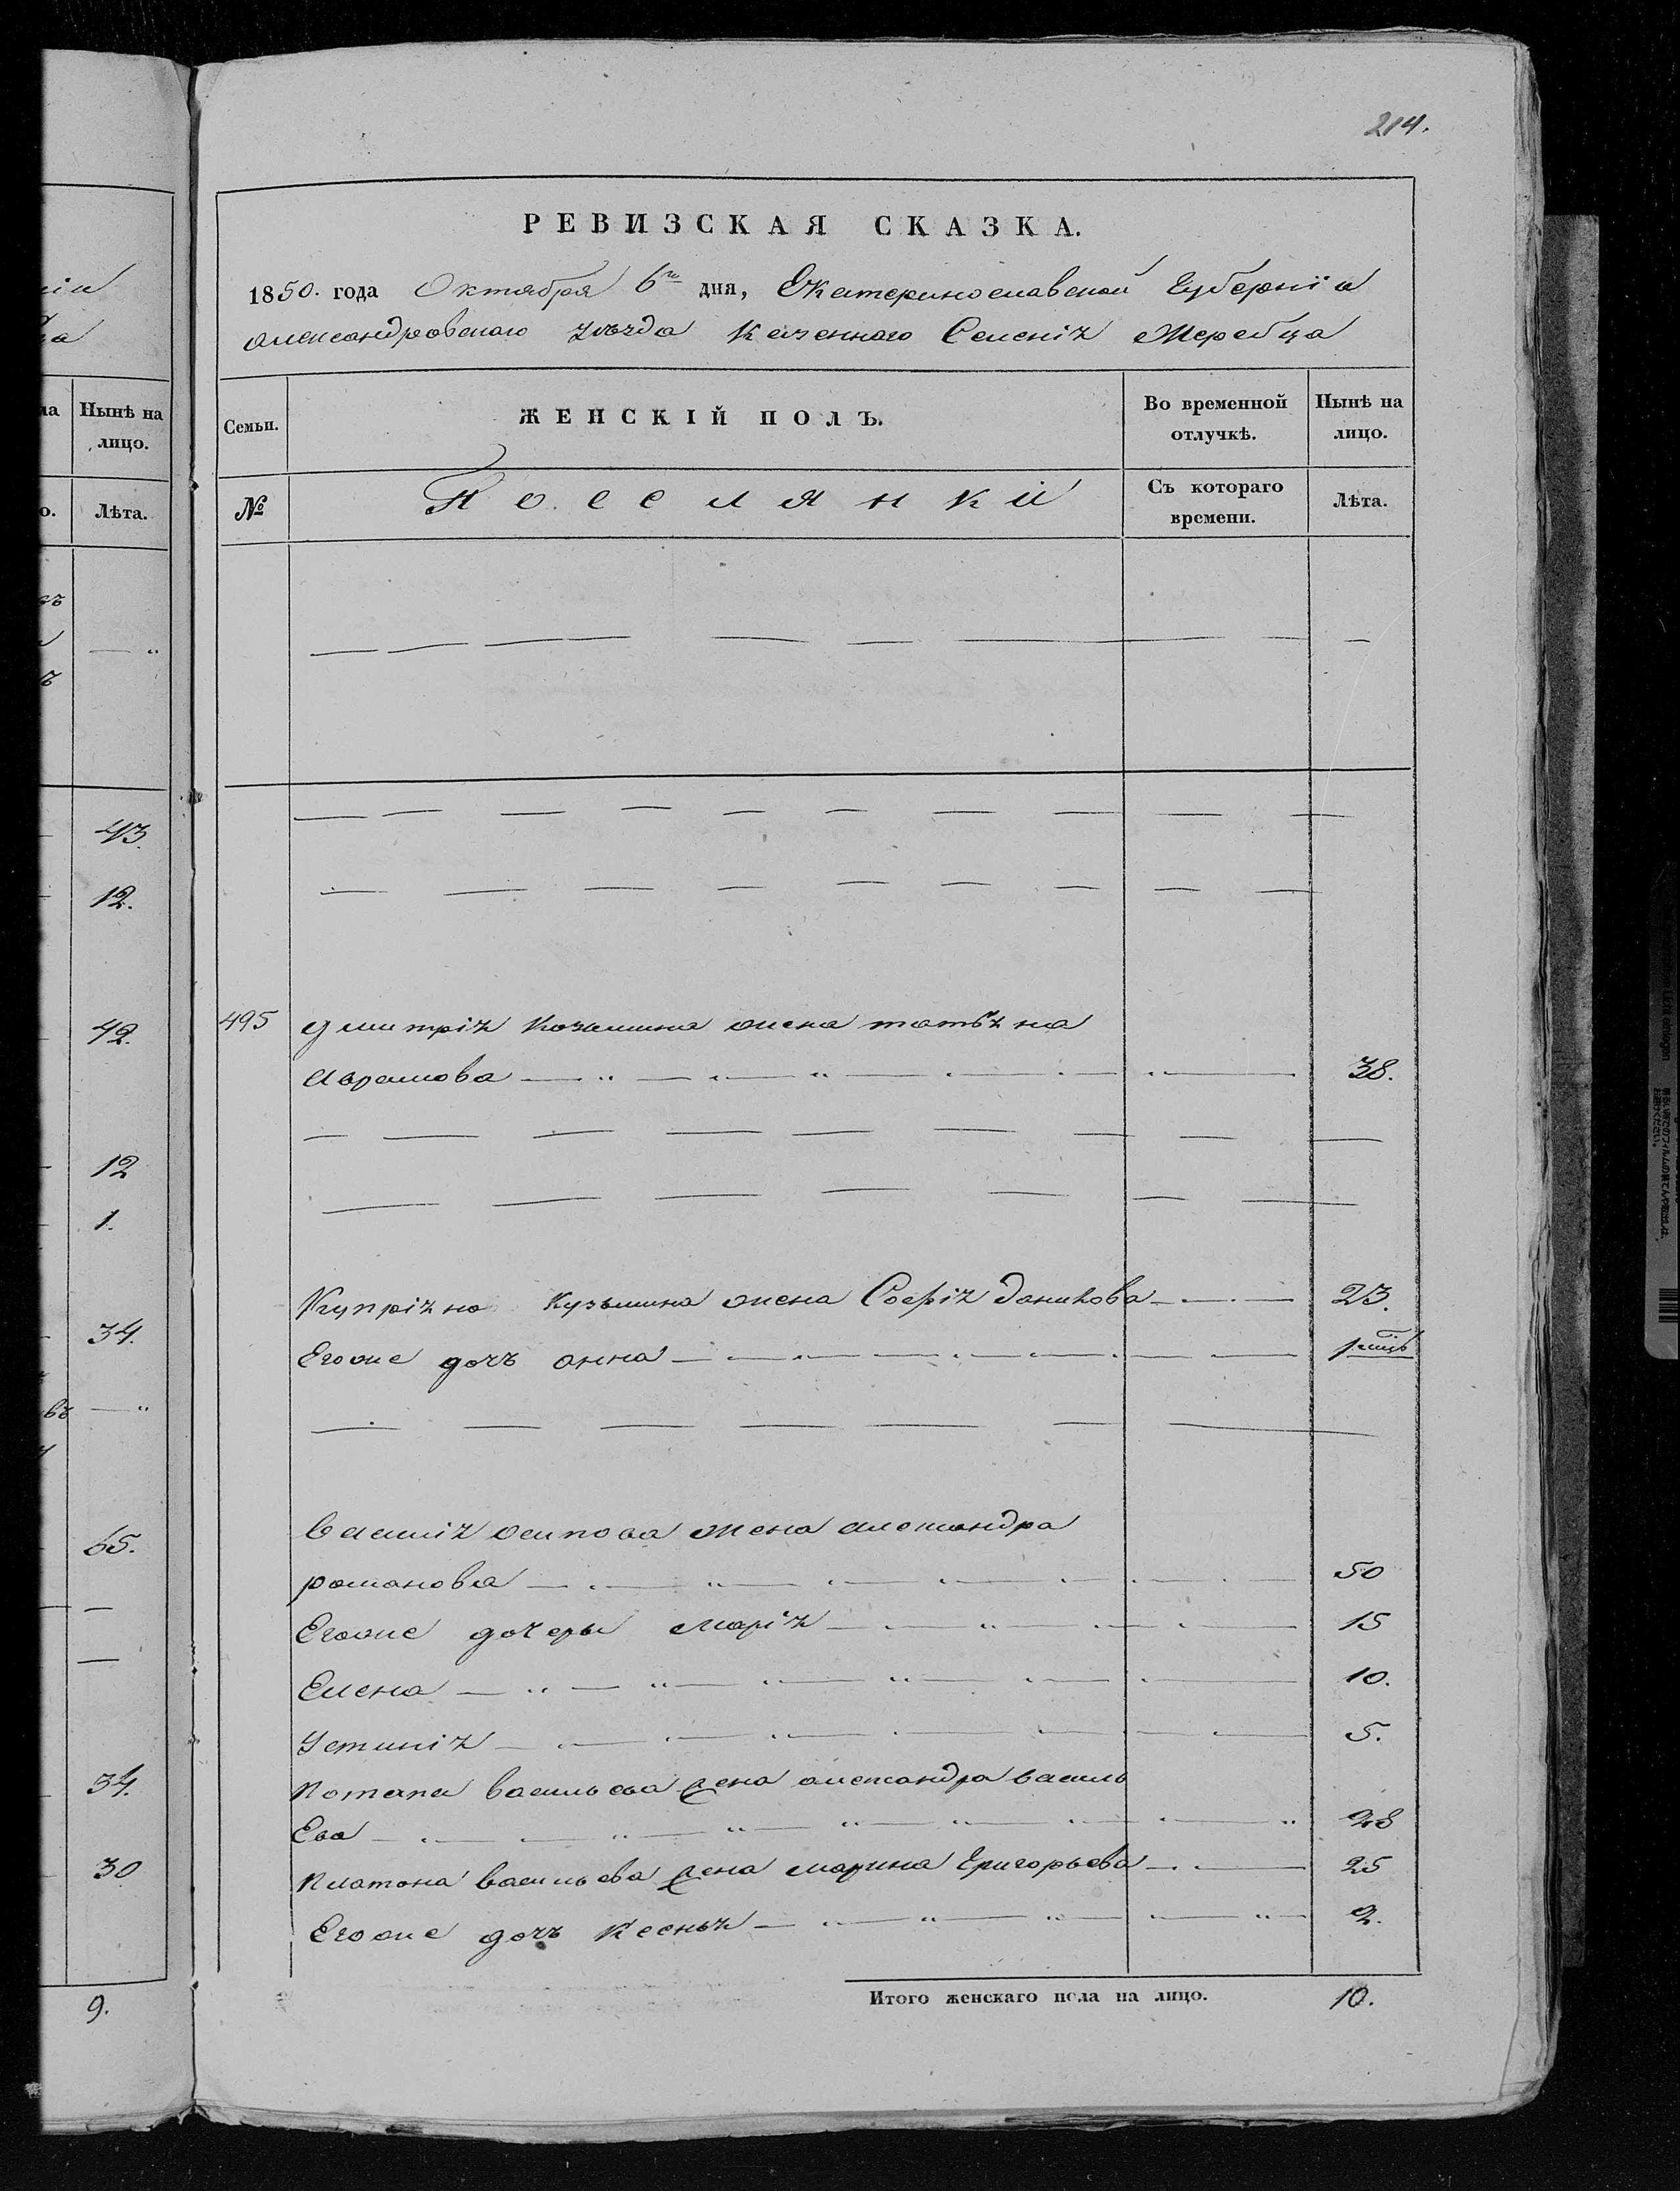 214.
РЕВИЗСКАЯ СКАЗКА.
1850. года Октября 6го дня, Екатеринославской Губерніи
Александровскаго уѣзда Казеннаго Селенія Жеребца
Семьи.
ЖЕНСКІЙ ПОЛЪ.
Во временной отлучкѣ.
Нынѣ на лицо.
№
Поселянки
Съ котораго времени.
Лѣта.
495 Дмитрія Козьмина жена татьяна
Аврамова 38.
Купріяна Кузьмина жена Софія Данилова 23.
Егоже дочь анна 1 мцъ
Василія осипова жена александра
романова 50
Егоже дочеры Марія 15
Елена 10.
Устинія 5.
Потапа васильева жена александра василь
Ева 28
Платона васильева жена марина Григорьева 25
Егоже дочь Ксенья 2.
Итого женскаго пола на лицо. 10.
Нынѣ на
лицо.
Лѣта.
43.
12.
42.
12
1.
34.
65.
34.
30
9.